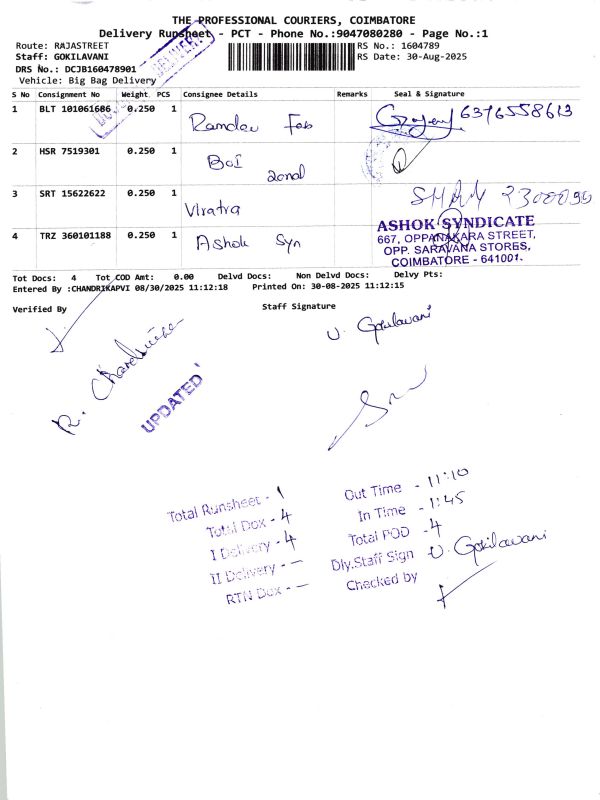 THE PROFESSIONAL COURIERS, COIMBATORE
Delivery Runsheet - PCT - Phone No.:9047080280 - Page No.:1
Route: RAJASTREET
RS No.: 1604789
Staff: GOKILAVANI
RS Date: 30-Aug-2025
DRS No.: DCJB160478901
Vehicle: Big Bag Delivery
DELIVERY
S No Consignment No Weight PCS Consignee Details Remarks Seal & Signature
1 BLT 101061686 0.250 1 Ramdev Fab 6376558613
2 HSR 7519301 0.250 1 BOI zonal
3 SRT 15622622 0.250 1 Viratra
4 TRZ 360101188 0.250 1 Ashok Syn
ASHOK SYNDICATE
667, OPPANAKARA STREET,
OPP. SARAVANA STORES,
COIMBATORE - 641001.
Tot Docs: 4 Tot COD Amt: 0.00 Delvd Docs: Non Delvd Docs: Delvy Pts:
Entered By :CHANDRIKAPVI 08/30/2025 11:12:18 Printed On: 30-08-2025 11:12:15
Verified By
Staff Signature
U. Gokilavani
R.
UPDATED
Total Runsheet - 1
Total Dox - 4
I Delivery - 4
II Delivery - —
RTN Dox - —
Out Time - 11:10
In Time - 1:45
Total POD - 4
Dly.Staff Sign U. Gokilavani
Checked by